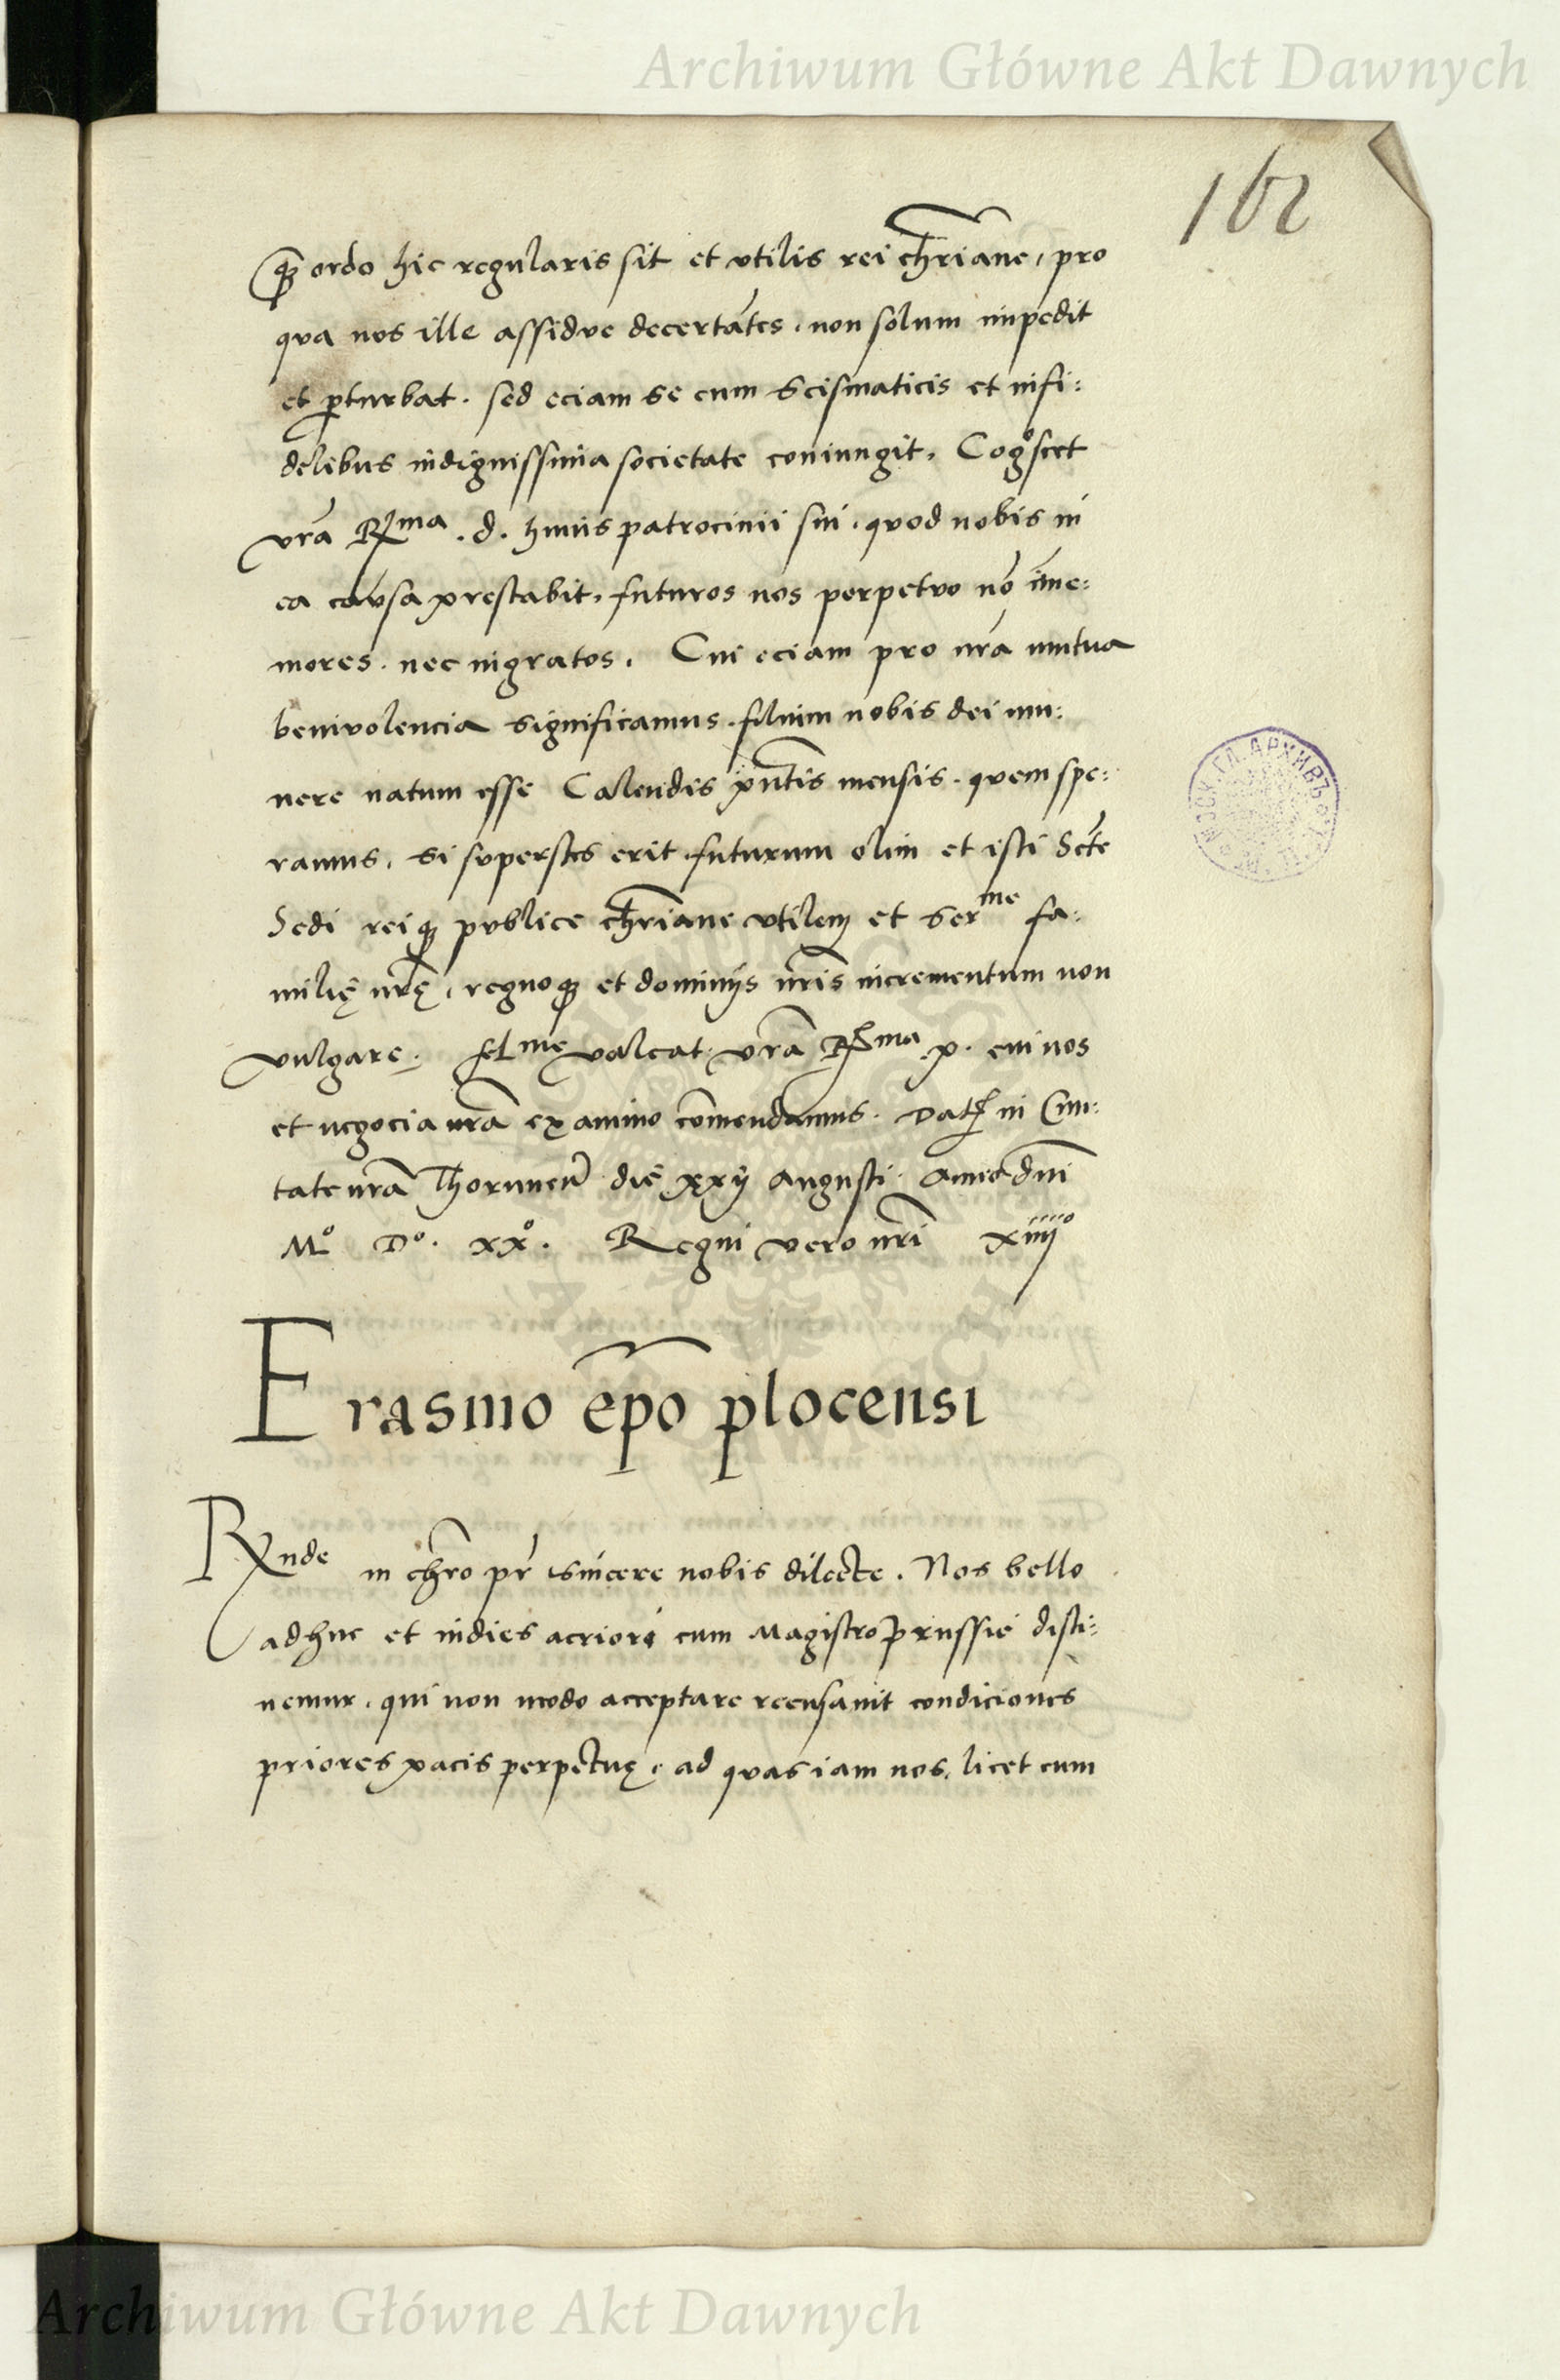 Archiwum Główne Akt Dawnych
162
q̃ȝ ordo hic regularis sit et vtilis rei chr̃iane, pro
qua nos ille assidve decertãtes. non solum impedit
et ꝑturbat. sed eciam se cum Scismaticis et infi:
delibus indignissima societate coniungit. Cogͦscet
vr̃a R.ma .d. huius patrocinii sui. quod nobis in
ea causa prestabit, futuros nos perpetvo nõ ĩme:
mores. nec ingratos. Cui eciam pro nr̃a mutua
benivolencia significamus. filium nobis dei mu:
nere natum esse Calendis pñtis mensis. quem spe:
ramus. si svperstes erit futurum olim et isti Sctẽ
Sedi reiqȝ pvblice chr̃iane vtilem et Ser^me fa:
milię nr̃ę, regnoqȝ et dominijs nr̃is incrementum non
vulgare. fel^me valeat vr̃a R^ma p. cui nos
et negocia nr̃a ex animo cõmendamus. Dat. in Ciui:
tate nr̃a Thorunen̄ die xxij augusti. anno dn̄i
M° D°. xx°. Regni vero nr̃i xiiij°
Erasmo ep̃o plocensi
R.nde in chr̃o pr̃ sincere nobis dilecte. Nos bello
adhuc et indies acriori cum Magistro prussie disti:
nemur. qui non modo acceptare recusauit condiciones
priores pacis perpetuę, ad quas iam nos, licet cum
Archiwum Główne Akt Dawnych